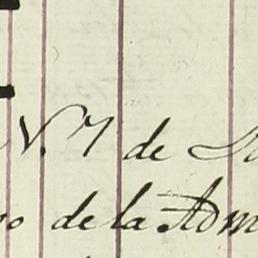 N. 7 de
de la Adm